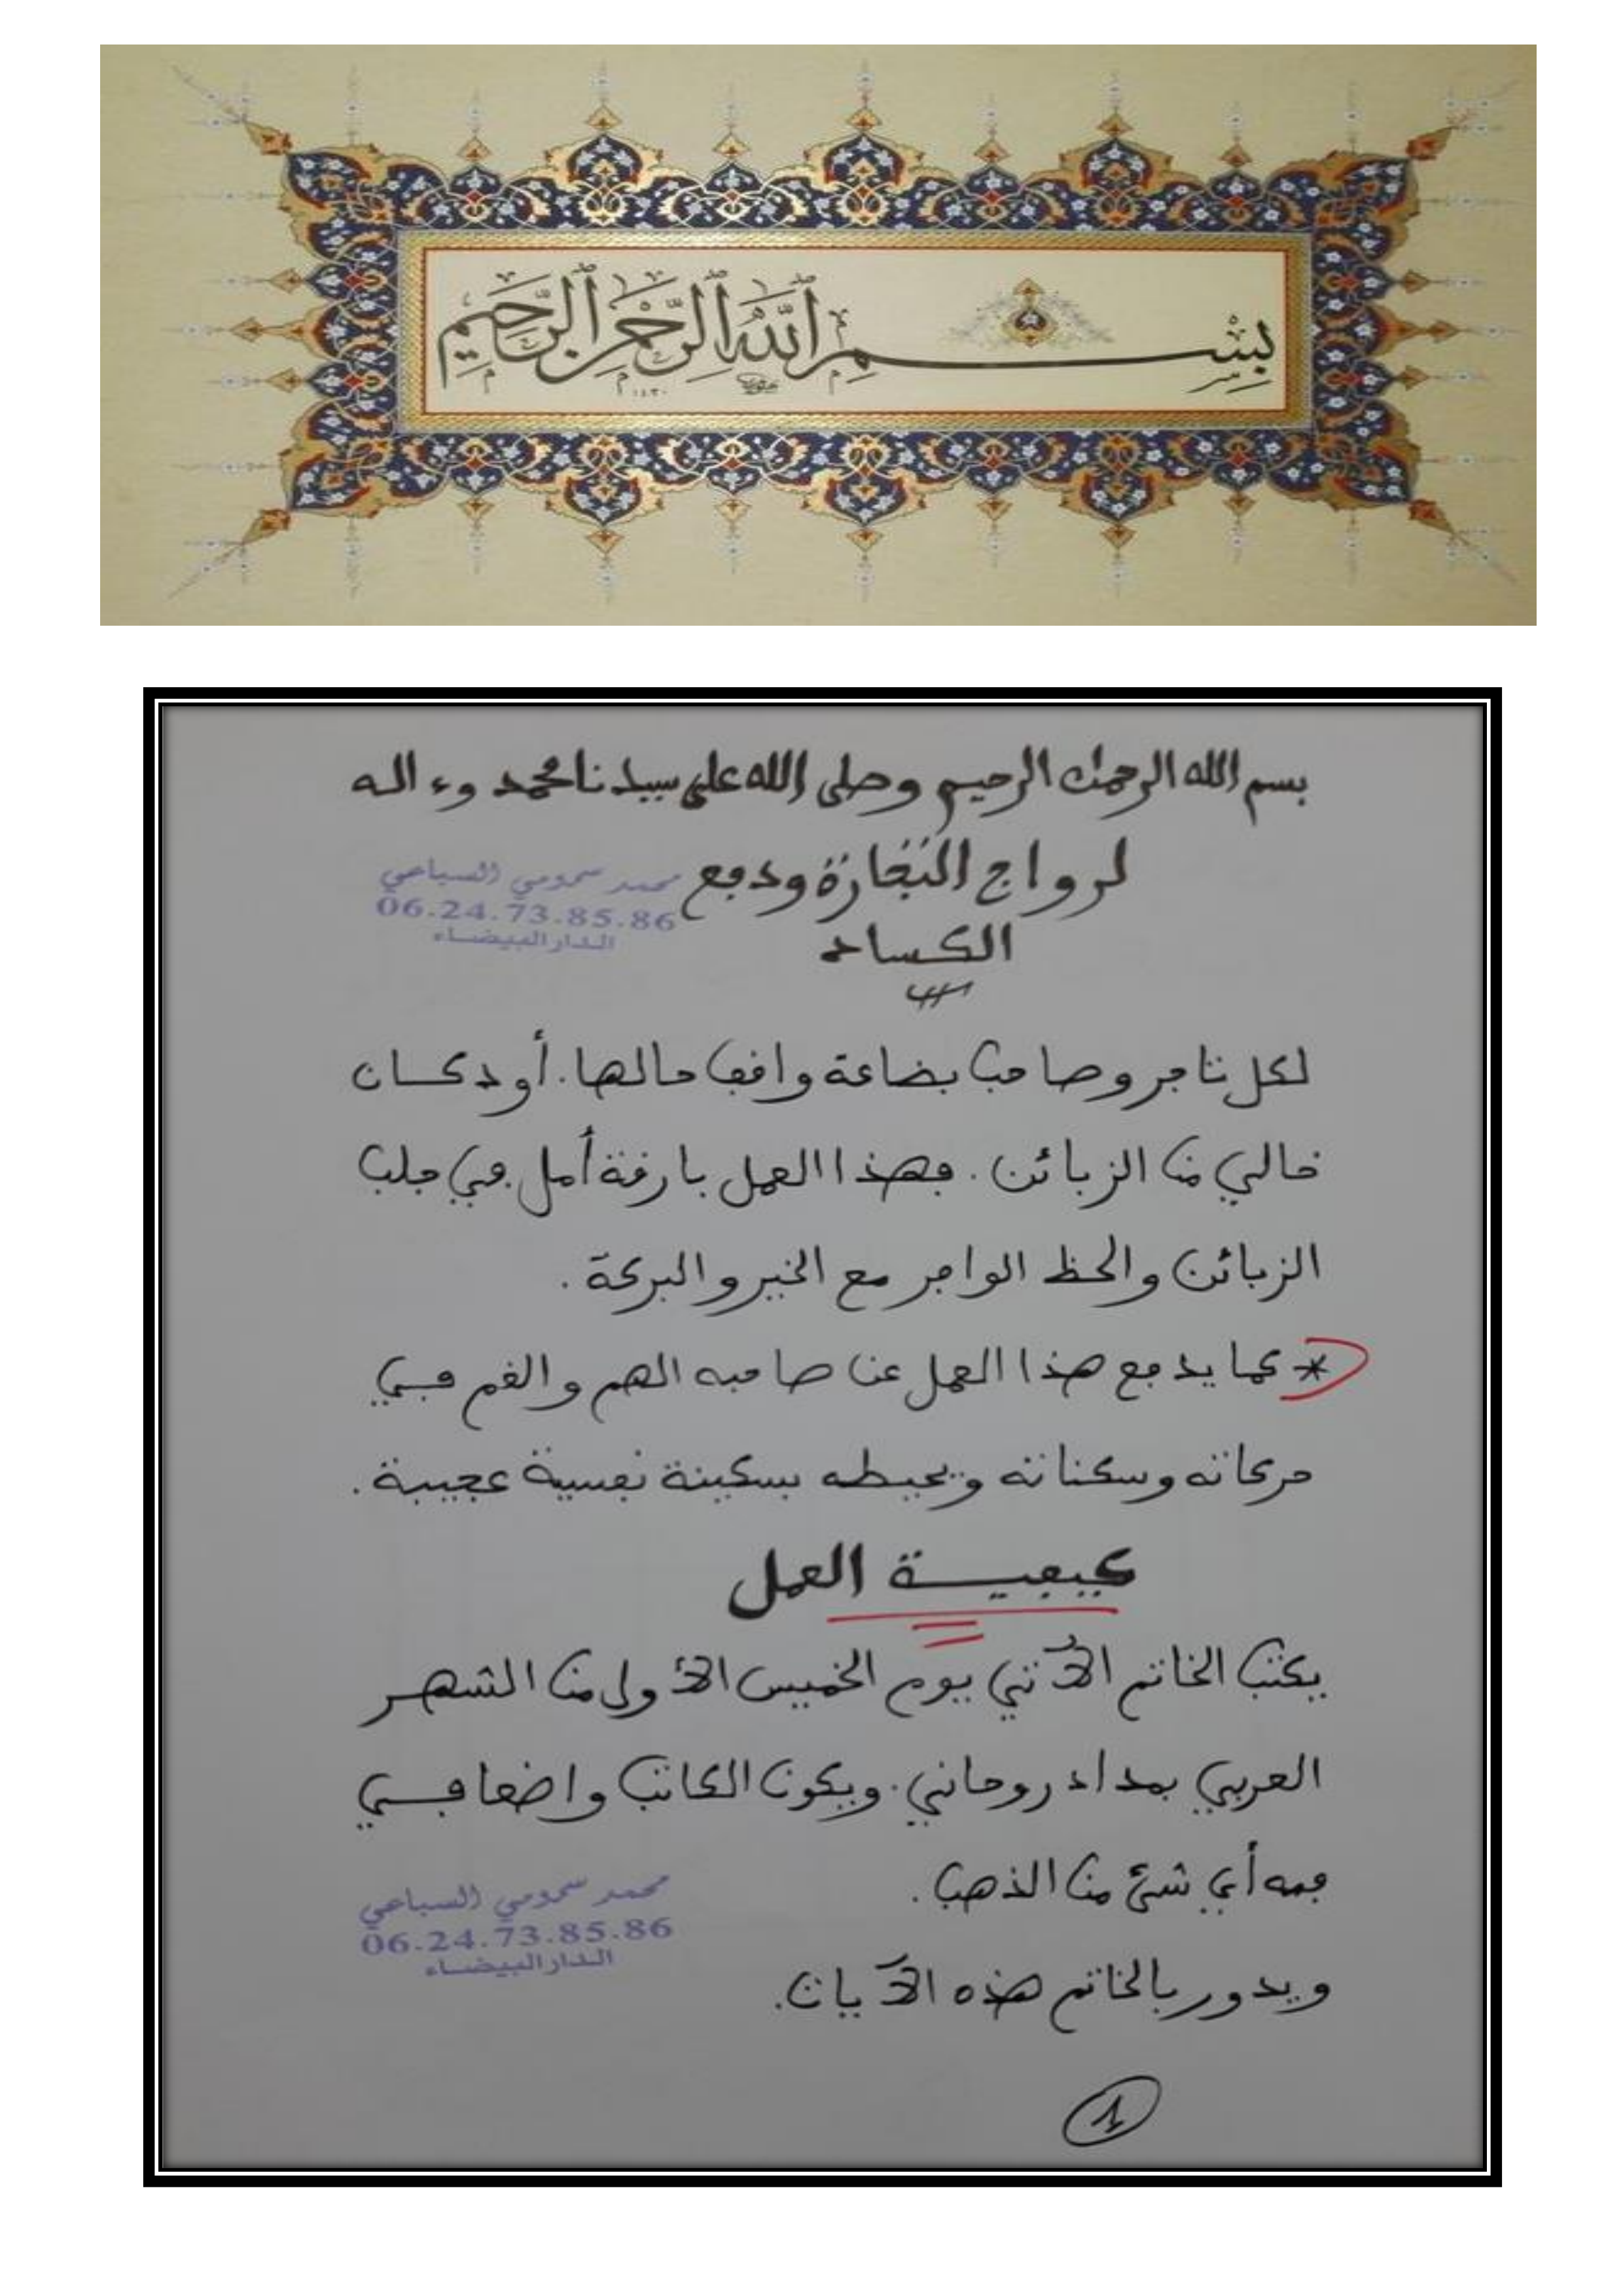 بِسْمِ ٱللَّهِ ٱلرَّحْمَٰنِ ٱلرَّحِيمِ
١٤٣٠
بسم الله الرحمان الرحيم وصلى الله على سيدنا محمد وءاله
لرواج التجارة ودفع
محمد سحومي السباعي
06.24.73.85.86
الدار البيضاء
الكساد
لكل تاجر وصاحب بضاعة واقف حالها. أو دكان
خالي من الزبائن. فهذا العمل بارقة أمل في جلب
الزبائن والحظ الوافر مع الخير والبركة.
* كما يدفع هذا العمل عن صاحبه الهم والغم في
حركاته وسكناته ويحيطه بسكينة نفسية عجيبة.
كيفية العمل
يكتب الخاتم الآتي يوم الخميس الأولى من الشهر
العربي بمداد روحاني. ويكون الكاتب واضعا في
فمه أي شئ من الذهب.
محمد سحومي السباعي
06.24.73.85.86
الدار البيضاء
ويدور بالخاتم هذه الآيات.
1